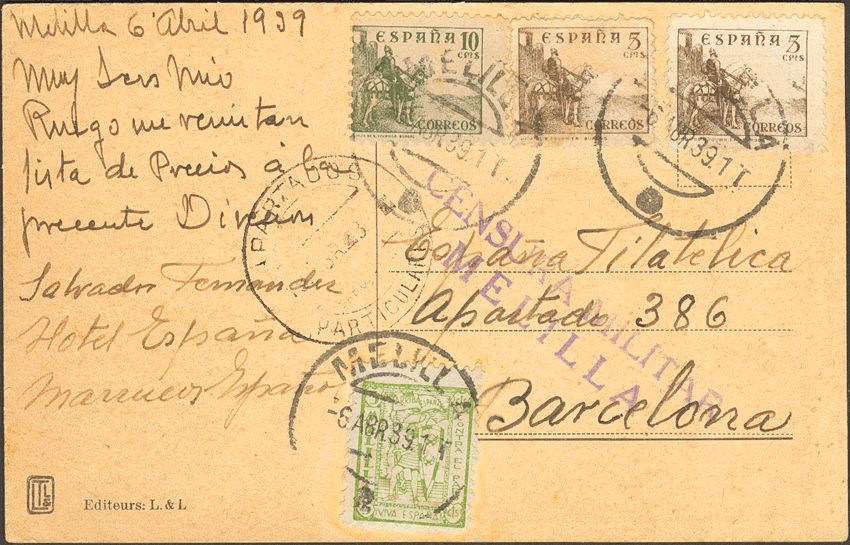 Melilla 6 Abril 1939
Muy Sers Mio
Ruego me remitan
lista de Precios á la
precente Dircion
Salvador Fernandez
Hotel España
Marruecos Español
ESPAÑA 10 CMS
CORREOS
ESPAÑA 5 CMS
CORREOS
ESPAÑA 5 CMS
CORREOS
MELILLA
-6ABR39.1T
MELILLA
-6ABR39.1T
APARTADOS
PARTICULARES
CENSURA MILITAR
MELILLA
España Filatelica
Apartado 386
Barcelona
MELILLA
-6ABR39.1T
CONTRA EL PARO
VIVA ESPAÑA
L&L
Editeurs: L. & L